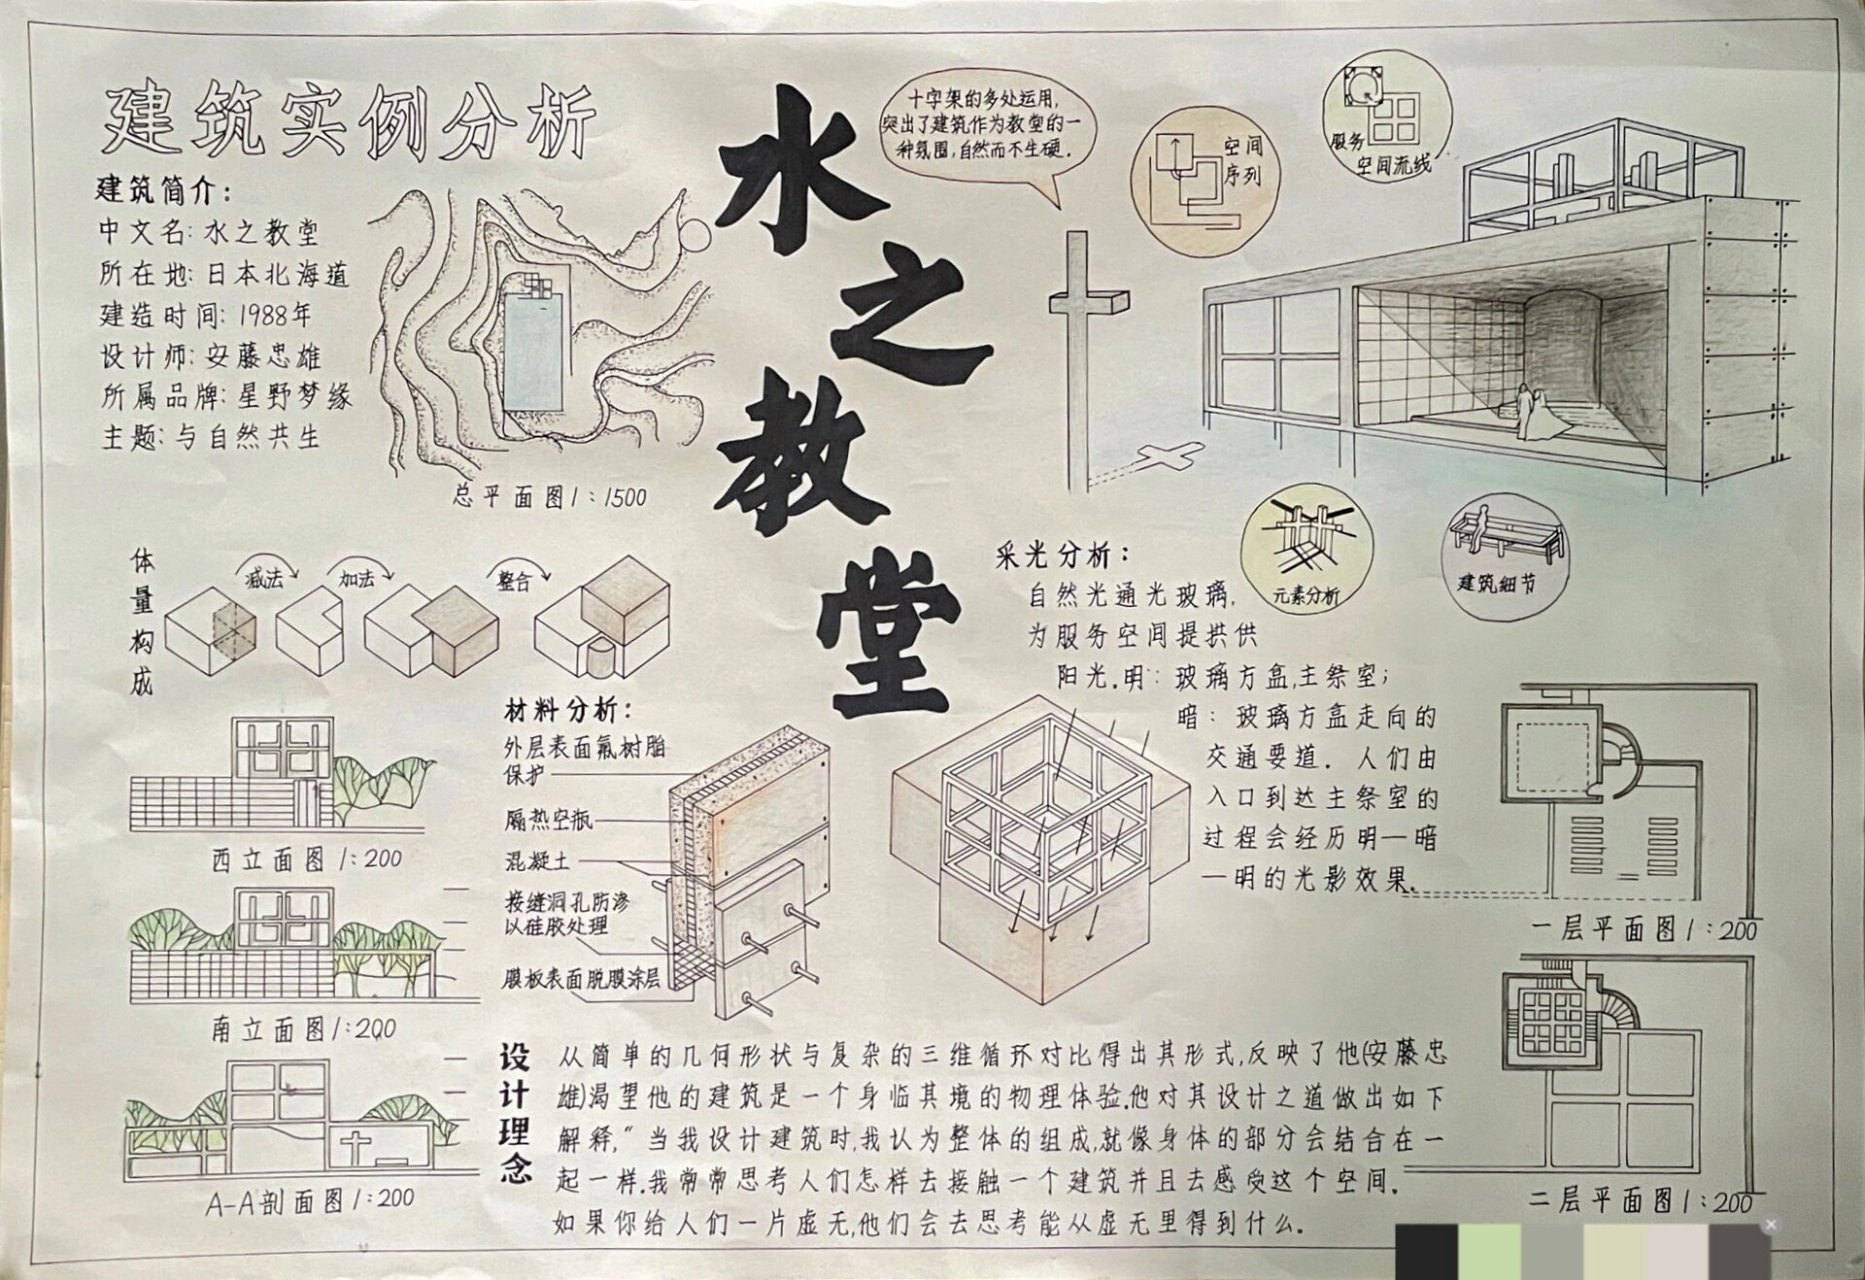 建筑实例分析
水之教堂
建筑简介：
中文名：水之教堂
所在地：日本北海道
建造时间：1988年
设计师：安藤忠雄
所属品牌：星野梦缘
主题：与自然共生
总平面图1：1500
十字架的多处运用，
突出了建筑作为教堂的一
种氛围，自然而不生硬．
空间
序列
服务
空间流线
体量构成
减法
加法
整合
元素分析
建筑细节
采光分析：
自然光通光玻璃，
为服务空间提拱供
阳光．明：玻璃方盒，主祭室；
暗：玻璃方盒走向的
交通要道．人们由
入口到达主祭室的
过程会经历明一暗
一明的光影效果．
材料分析：
外层表面氟树脂
保护
隔热空瓶
混凝土
接缝洞孔防渗
以硅胶处理
膜板表面脱膜涂层
西立面图1：200
南立面图1：200
A-A剖面图1：200
一层平面图1：200
二层平面图1：200
设计理念
从简单的几何形状与复杂的三维循环对比得出其形式，反映了他(安藤忠
雄)渴望他的建筑是一个身临其境的物理体验．他对其设计之道做出如下
解释，"当我设计建筑时，我认为整体的组成，就像身体的部分会结合在一
起一样．我常常思考人们怎样去接触一个建筑并且去感受这个空间．
如果你给人们一片虚无，他们会去思考能从虚无里得到什么．